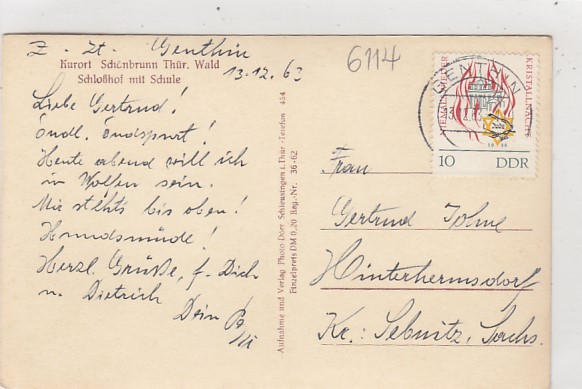 Z. Zt. Genthin
Kurort Schönbrunn Thür. Wald
Schloßhof mit Schule
13.12.63
6114
Liebe Gertrud!
Endl. Endspurt!
Heute abend will ich
in Wolfen sein.
Mir stehts bis oben!
Hundsmüde!
Herzl. Grüße, f. Dich
u. Dietrich
Dein
Aufnahme und Verlag Photo-Dörr Schleusingen i. Thür. Telefon 454
Einzelpreis DM 0,20 Reg.-Nr. 36-62
GENTHIN
NIEMALS WIEDER
KRISTALLNACHT
10 DDR
Frau
Gertrud
Hinterhermsdorf
Kr.: Sebnitz, Sachs.